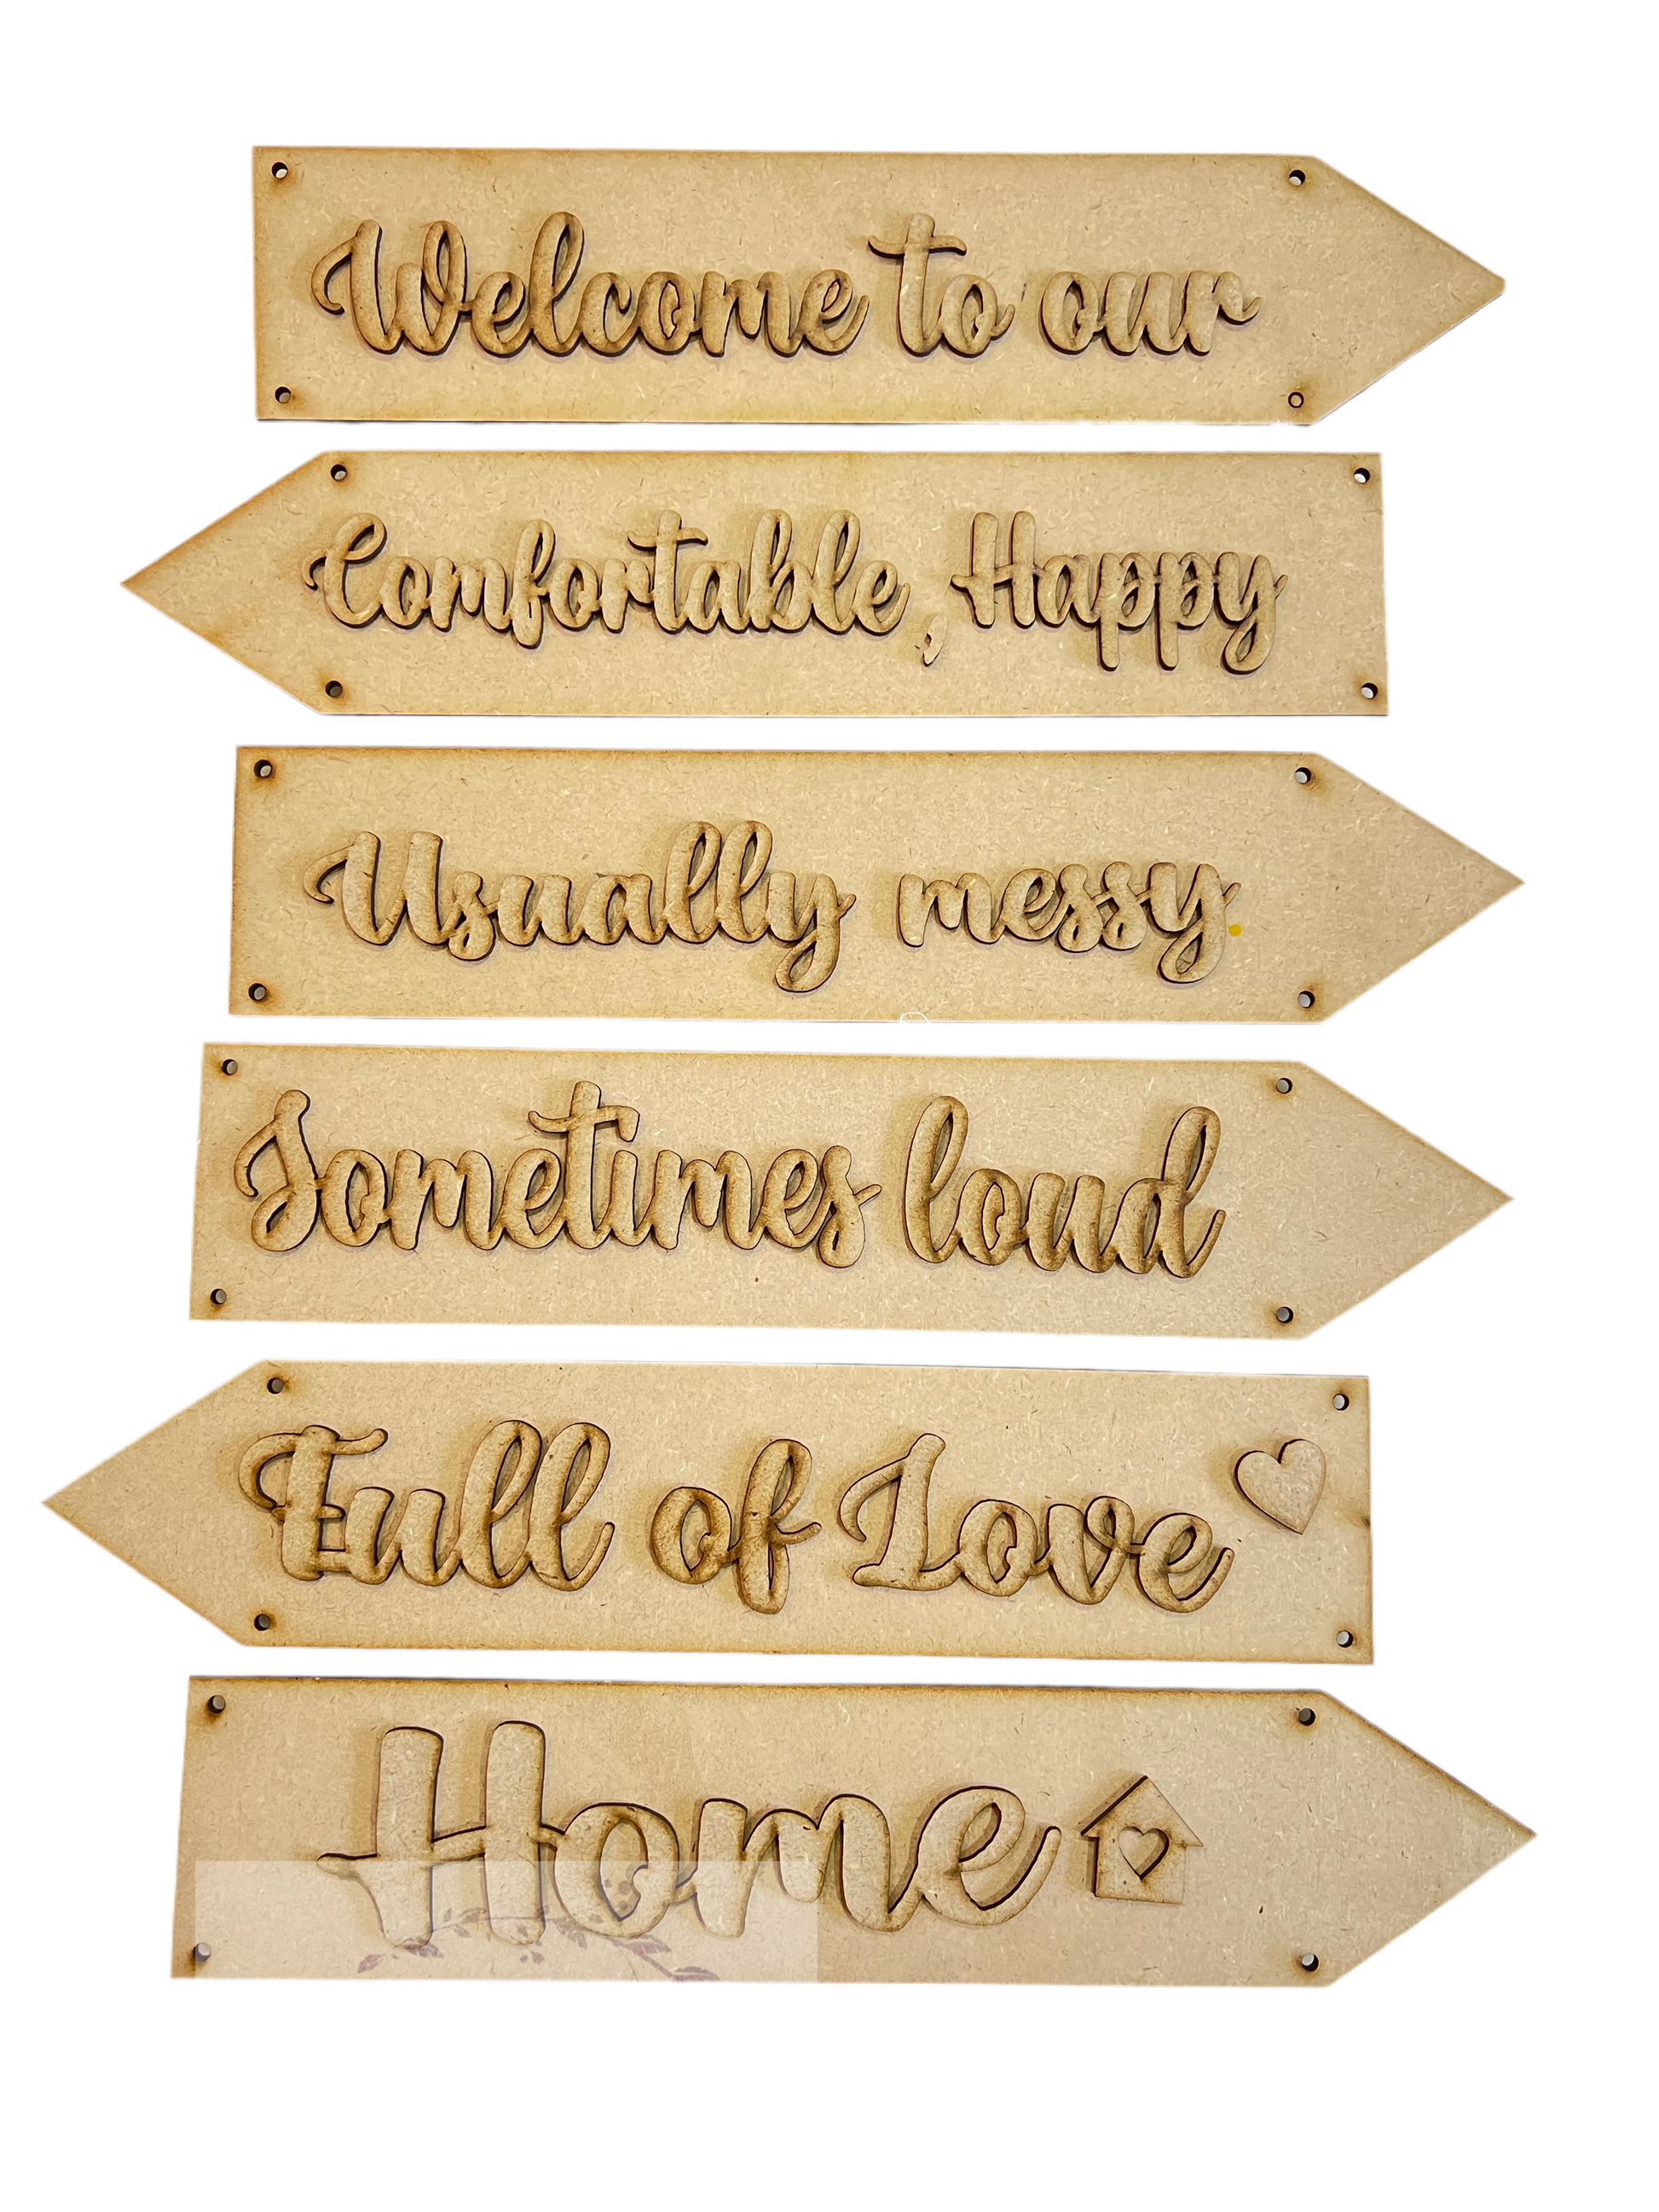 Welcome to our
Comfortable, Happy
Usually messy
Sometimes loud
Full of Love
Home